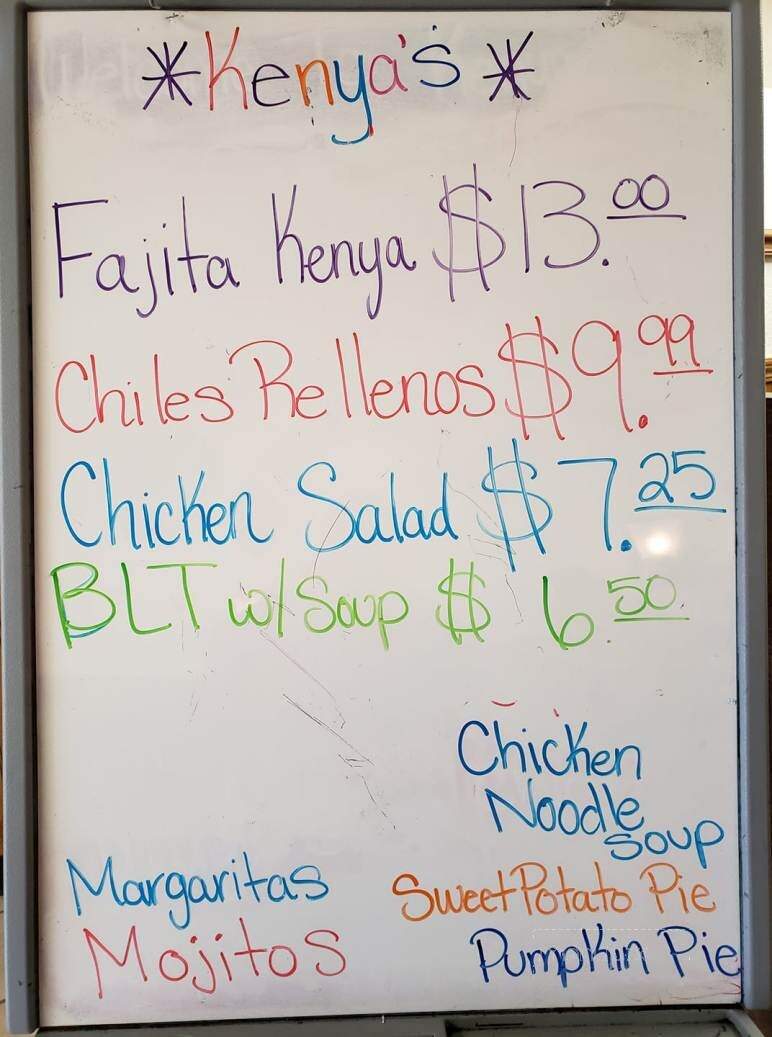 *Kenya's*
Fajita Kenya $13.00
Chiles Rellenos $9.99
Chicken Salad $7.25
BLT w/Soup $ 6.50
Chicken
Noodle
Soup
Margaritas
Sweet Potato Pie
Mojitos
Pumpkin Pie